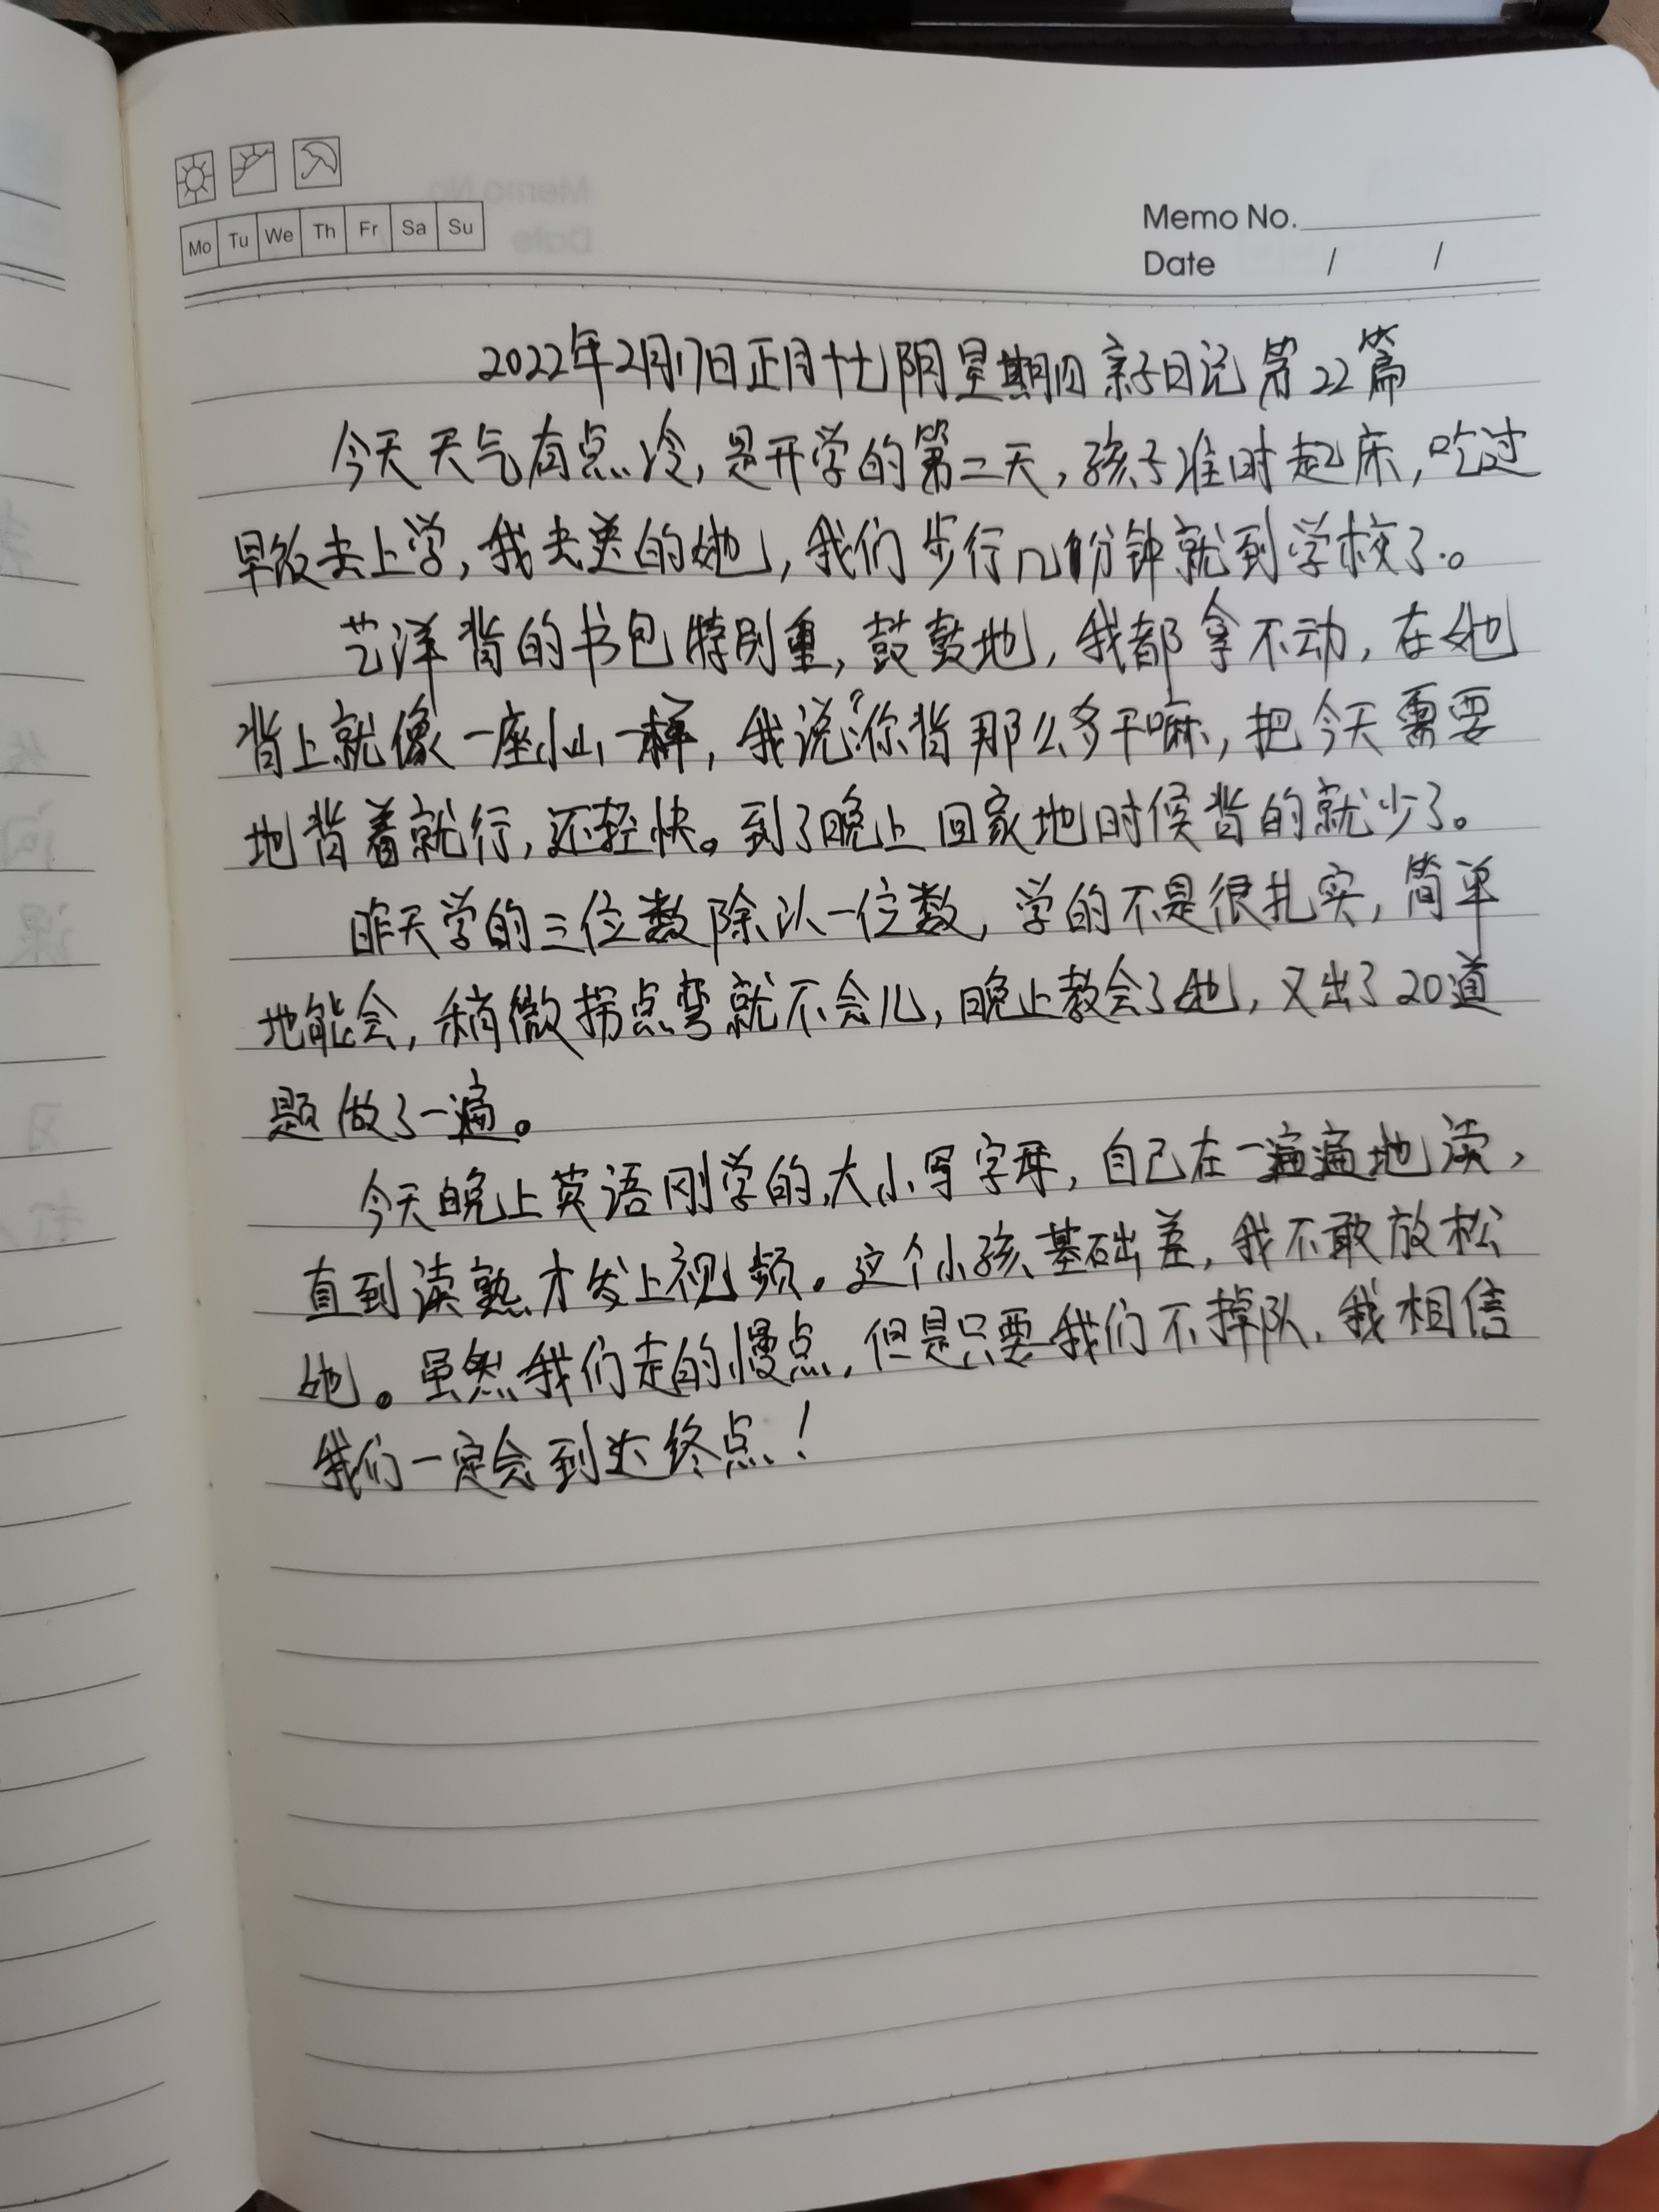 Mo Tu We Th Fr Sa Su
Memo No.
Date / /
2022年2月17日正月十七阴星期四亲子日记第22篇
今天天气有点冷,是开学的第二天,孩子准时起床,吃过
早饭去上学,我去送的她,我们步行几分钟就到学校了。
艺洋背的书包特别重,鼓鼓地,我都拿不动,在她
背上就像一座小山一样,我说“你背那么多干嘛,把今天需要
地背着就行,还轻快。到了晚上回家地时候背的就少了。
昨天学的三位数除以一位数,学的不是很扎实,简单
地能会,稍微拐点弯就不会儿,晚上教会了她,又出了20道
题做了一遍。
今天晚上英语刚学的大小写字母,自己在一遍遍地读,
直到读熟才发上视频。这个小孩基础差,我不敢放松
她。虽然我们走的慢点,但是只要我们不掉队,我相信
我们一定会到达终点!